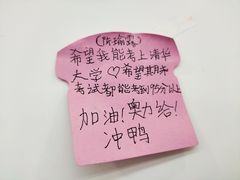 (陈瑜露)
希望我能考上清华
大学♡希望其期末
考试都能考到95分以上
加油!奥力给!
冲鸭